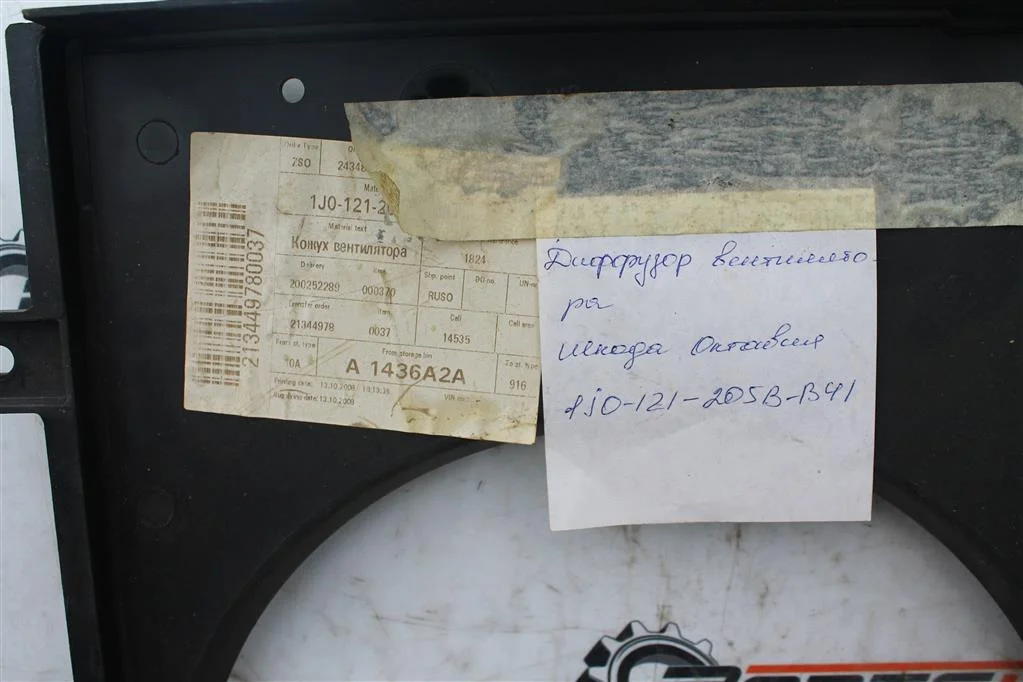 Order Type
ZSO
1J0-121-2
Material text
Кожух вентилятора
1824
Delivery
Item
200252289
000370
Shp. point
RUSO
DG no.
Transfer order
Item
21344978
0037
Cell
14535
Cell area
From st. type
10A
From storage bin
A 1436A2A
916
Printing date: 13.10.2008
date: 13.10.2008
213449780037
Диффузор вентилято
ра
Шкода Октавия
1J0-121-205B-B41